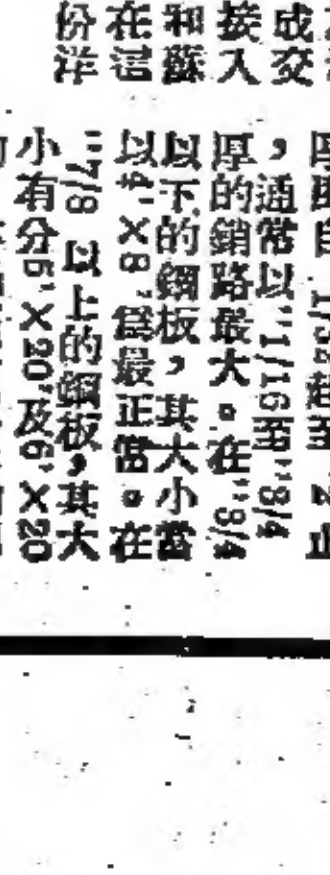 成交
接入
和蘇
在這
份洋
厚度自 1/32起至
，通常以"1/16至"3/4
厚的銷路最大。在"3/4
以下的鋼板，其大小當
以4'×8'爲最正當。在
"7/8 以上的鋼板，其大
小有分5'×20'及6'×20